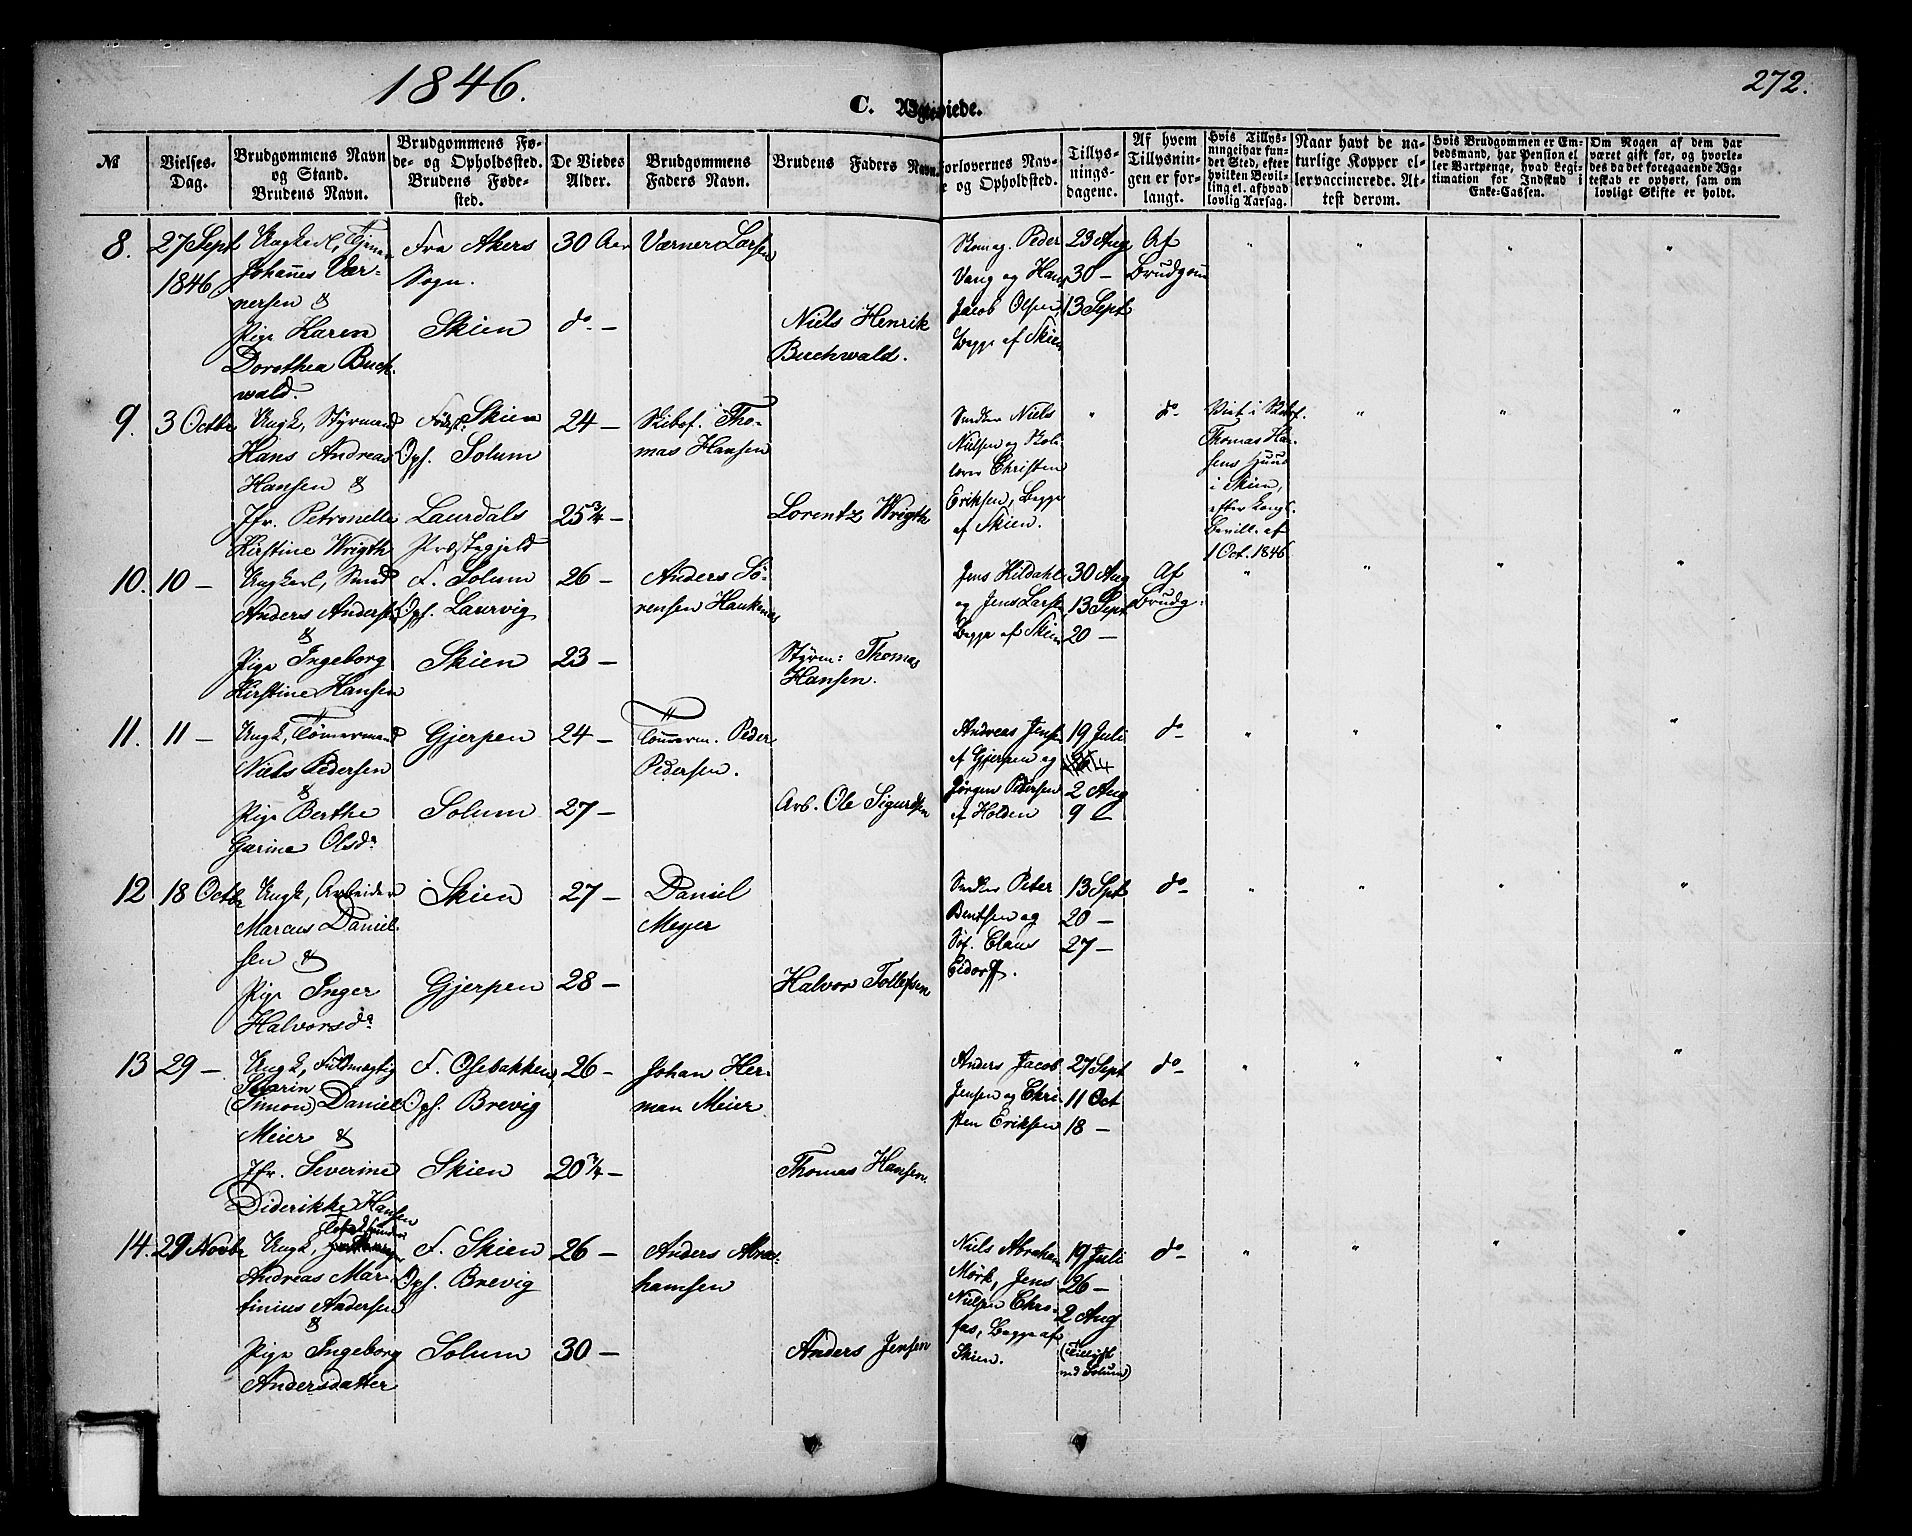 1846.
272.
C. Ægteviede.
№
Vielses-
Dag.
Brudgommens Navn
og Stand.
Brudens Navn.
Brudgommens Fø-
de- og Opholdssted.
Brudens Føde-
sted.
De Viedes
Alder.
Brudgommens
Faders Navn.
Brudens Faders Navn.
Forlovernes Nav-
e og Opholdsted.
Tillys-
nings-
dagene.
Af hvem
Tillysnin-
gen er for-
langt.
Hvis Tillys-
ningei har fun-
det Sted, efter
hvilken Bevil-
ling el. afhvad
lovlig Aarsag.
Naar havt de na-
turlige Kopper el-
ler vaccinerede. At-
test derom.
Hvis Brudgommen er Em-
bedsmand, har Pension el-
ler Vartpenge, hvad Legi-
timation for Indskud i
Enke-Cassen.
Om Nogen af dem har
været gift før, og hvorle-
des da det foregaaende Æg-
teskab er ophørt, sam om
lovligt Skifte er holdt.
8.
27 Sept
1846
Ungkarl, Tjener
Johannes Vær-
nersen &
Pige Karen
Dorothea Buch-
wald.
Fra Akers
Sogn.
Skien
30 Aar
do –
Værner Larsen
Niels Henrik
Buchwald.
Skomag. Peder
Vang og Hans
Jacob Olsen
Begge af Skien
23 Aug
30 –
13 Sept
Af
Brudgom
9.
3 Octbr
Ungk, Styrmand
Hans Andreas
Hansen &
Jfr. Petronelle
Kirstine Wrigth
Fødest: Skien
Oph. Solum
Laurdals
Præstegjeld
24 –
25 3/4 –
Skibsf. Tho-
mas Hansen
Lorentz Wrigth
Smeden Niels
Nielsen og Skol-
lærer Christen
Eriksen, Begge
af Skien.
do
Viet i Skibsf.
Thomas Han-
sens Huus
i Skien,
efter Kongl.
Bevill. af
1 Oct. 1846
10.
10 –
Ungkarl, Smed
Anders Anders.
&
Pige Ingeborg
Kirstine Hansen
F. Solum
Oph. Laurvig
Skien
26 –
23 –
Anders Sö-
rensen Haukenæs
Styrm: Thomas
Hansen.
Jens Hildahl
og Jens Larsen
Begge af Skien
30 Aug
13 Sept
20 –
Af
Brudg:
11.
11 –
Ungk, Tömermand
Niels Pedersen
&
Pige Berthe
Gurine Olsda
Gjerpen
Solum
24 –
27 –
Tömmerm. Peder
Pedersen.
Arb. Ole Sigurdsen
Andreas Jensen
af Gjerpen og
Jørgen Pedersen
af Holden
19 Juli
2 Aug
9
do
12
18 Octbr
Ungk, Arbeider
Marcus Daniel-
sen &
Pige Inger
Halvorsda
Skien
Gjerpen
27 –
28 –
Daniel
Meyer
Halvor Tollefsen
Smeden Peter
Bentsen og
Söf. Claus
Eidorff.
13 Spt
20 –
27 –
do
13
29 –
Ungk, Fuldmægtig
Severin
(Simon) Daniel
Meier &
Jfr. Severine
Diderikke Hansen
F. Osebakken
Oph. Brevig
Skien
26 –
20 3/4 –
Johan Her-
man Meier
Thomas Hansen
Anders Jacob
Jensen og Chri-
sten Eriksen
27 Sept
11 Oct
18 –
do
14.
29 Novbr
Ungk,
Andreas Mar-
tinius Andersen
&
Pige Ingeborg
Andersdatter
F. Skien
Oph. Brevig
Solum
26 –
30 –
Anders Abra-
hamsen
Anders Jensen
Niels Abraham
Mörk, Jens
Nielsen Chro-
fas, Begge af
Skien.
19 Juli
26 –
2 Aug
(Tillyst
ved Solum)
do